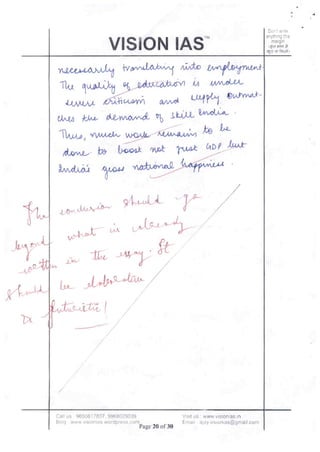 VISION IAS™
Don't write
anything this
margin
necessarily translating into employment.
The quality of education is under
severe criticism and supply outmat-
ches the demand of skill India.
Thus, much work remains to be
done to boost not just GDP but
India's gross national happiness.
The conclusion should go
beyond what is already
written in the essay. It
should be elaborative
& futuristic!
Call us : 9650617807, 9968029039
Visit us : www.visionias.in
Blog : www.visionias.wordpress.com
Page 20 of 30
Email : ajay.visionias@gmail.com